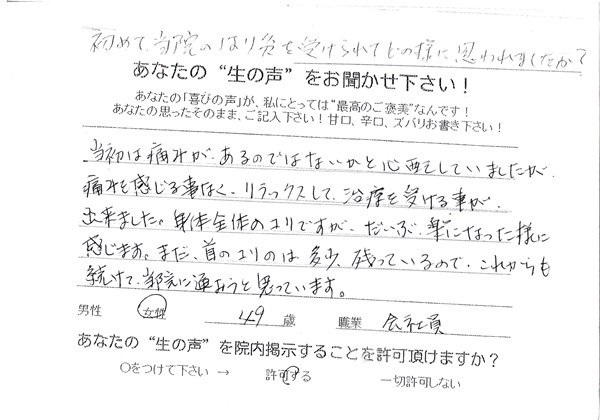 初めて、当院のはり灸を受けられてどの様に思われましたか?
あなたの“生の声”をお聞かせ下さい!
あなたの「喜びの声」が、私にとっては“最高のご褒美”なんです!
あなたの思ったそのまま、ご記入下さい!甘口、辛口、ズバリお書き下さい!
当初は痛みが、あるのではないかと心配していましたが、
痛みを感じる事なく、リラックスして、治療を受ける事が、
出来ました。身体全体のコリですが、だいぶ、楽になった様に
感じます。まだ、首のコリのは多少、残っているので、これからも
続けて、当院に通おうと思っています。
男性 女性 49 歳 職業 会社員
あなたの“生の声”を院内掲示することを許可頂けますか?
○をつけて下さい → 許可する 一切許可しない